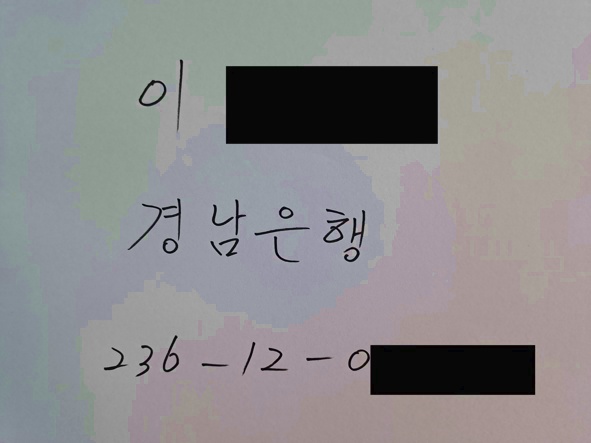 이
경남은행
236-12-0